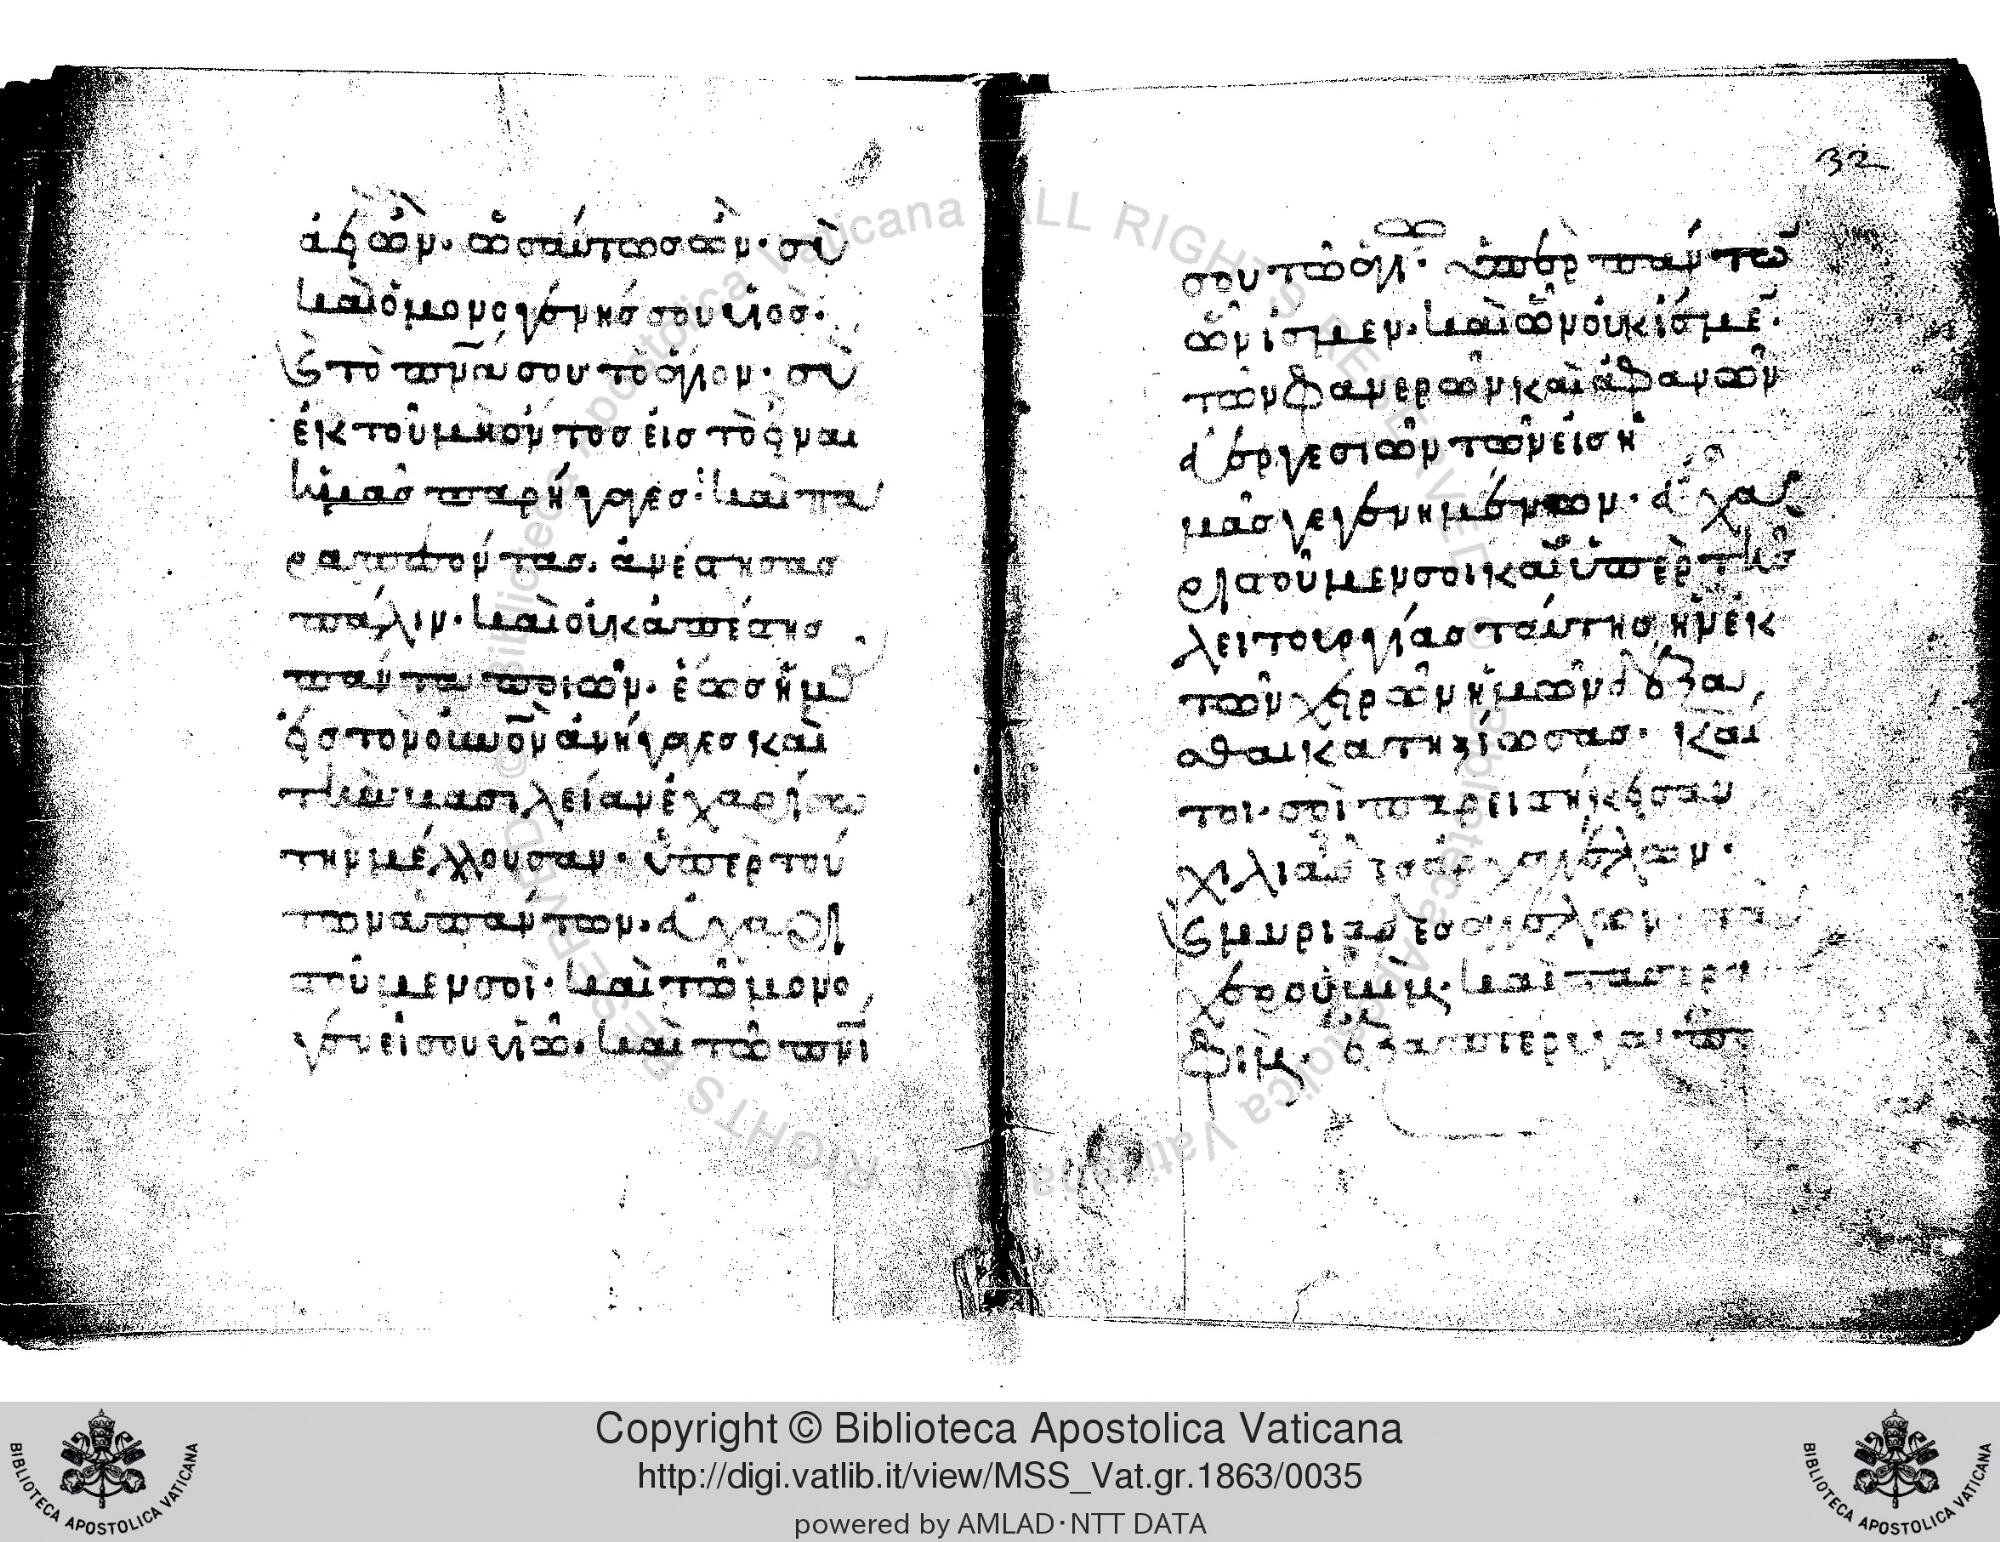 ἀεὶ ὢν· ὡσαύτως ὢν· σὺ
καὶ ὁ μονογενής σου υἱός·
καὶ τὸ πνᾶ σου τὸ ἅγιον· σὺ
ἐκ τοῦ μὴ ὄντος εἰς τὸ εἶναι
ἡμᾶς παρήγαγες· καὶ πα
ραπεσόντας ἀνέστησας
πάλιν· καὶ οὐκ ἀπέστης
πάντα ποιῶν· ἕως ἡμᾶς
εἰς τὸν οὐνὸν ἀνήγαγες καὶ
τὴν βασιλείαν ἐχαρίσω
τὴν μέλλουσαν· ὑπὲρ τού
των ἁπάντων· εὐχαρι
στοῦμεν σοὶ· καὶ τῶ μονο
γενεῖ σου υἱῶ· καὶ τῶ πνΐ
32
σου τῶ ἁγίω· ὑπὲρ πάντων
ὧν ἴσμεν· καὶ ὧν οὐκ ἴσμεν·
τῶν φανερῶν καὶ ἀφανῶν
εὐεργεσιῶν τῶν εἰς ἡ
μᾶς γεγενημένων· εὐχα
ριστοῦμεν σοι καὶ ὑπὲρ τῆς
λειτουργίας ταύτης ἣν ἐκ
τῶν χειρῶν ἡμῶν δέξα
σθαι κατηξίωσας· καί
τοι· σοὶ παρειστήκεισαν
χιλιάδες ἀρχαγγέλων·
καὶ μυριάδες ἀγγέλων· τὰ
χερουβὶμ· καὶ τὰ σερα
φὶμ· ἑξαπτέρυγα
Copyright © Biblioteca Apostolica Vaticana
http://digi.vatlib.it/view/MSS_Vat.gr.1863/0035
powered by AMLAD·NTT DATA
BIBLIOTECA APOSTOLICA VATICANA
BIBLIOTECA APOSTOLICA VATICANA